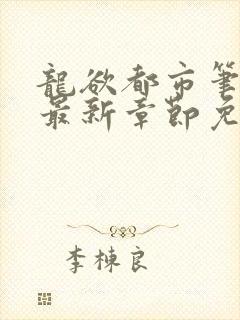 龍欲都市筆
最新章節免
李棟良